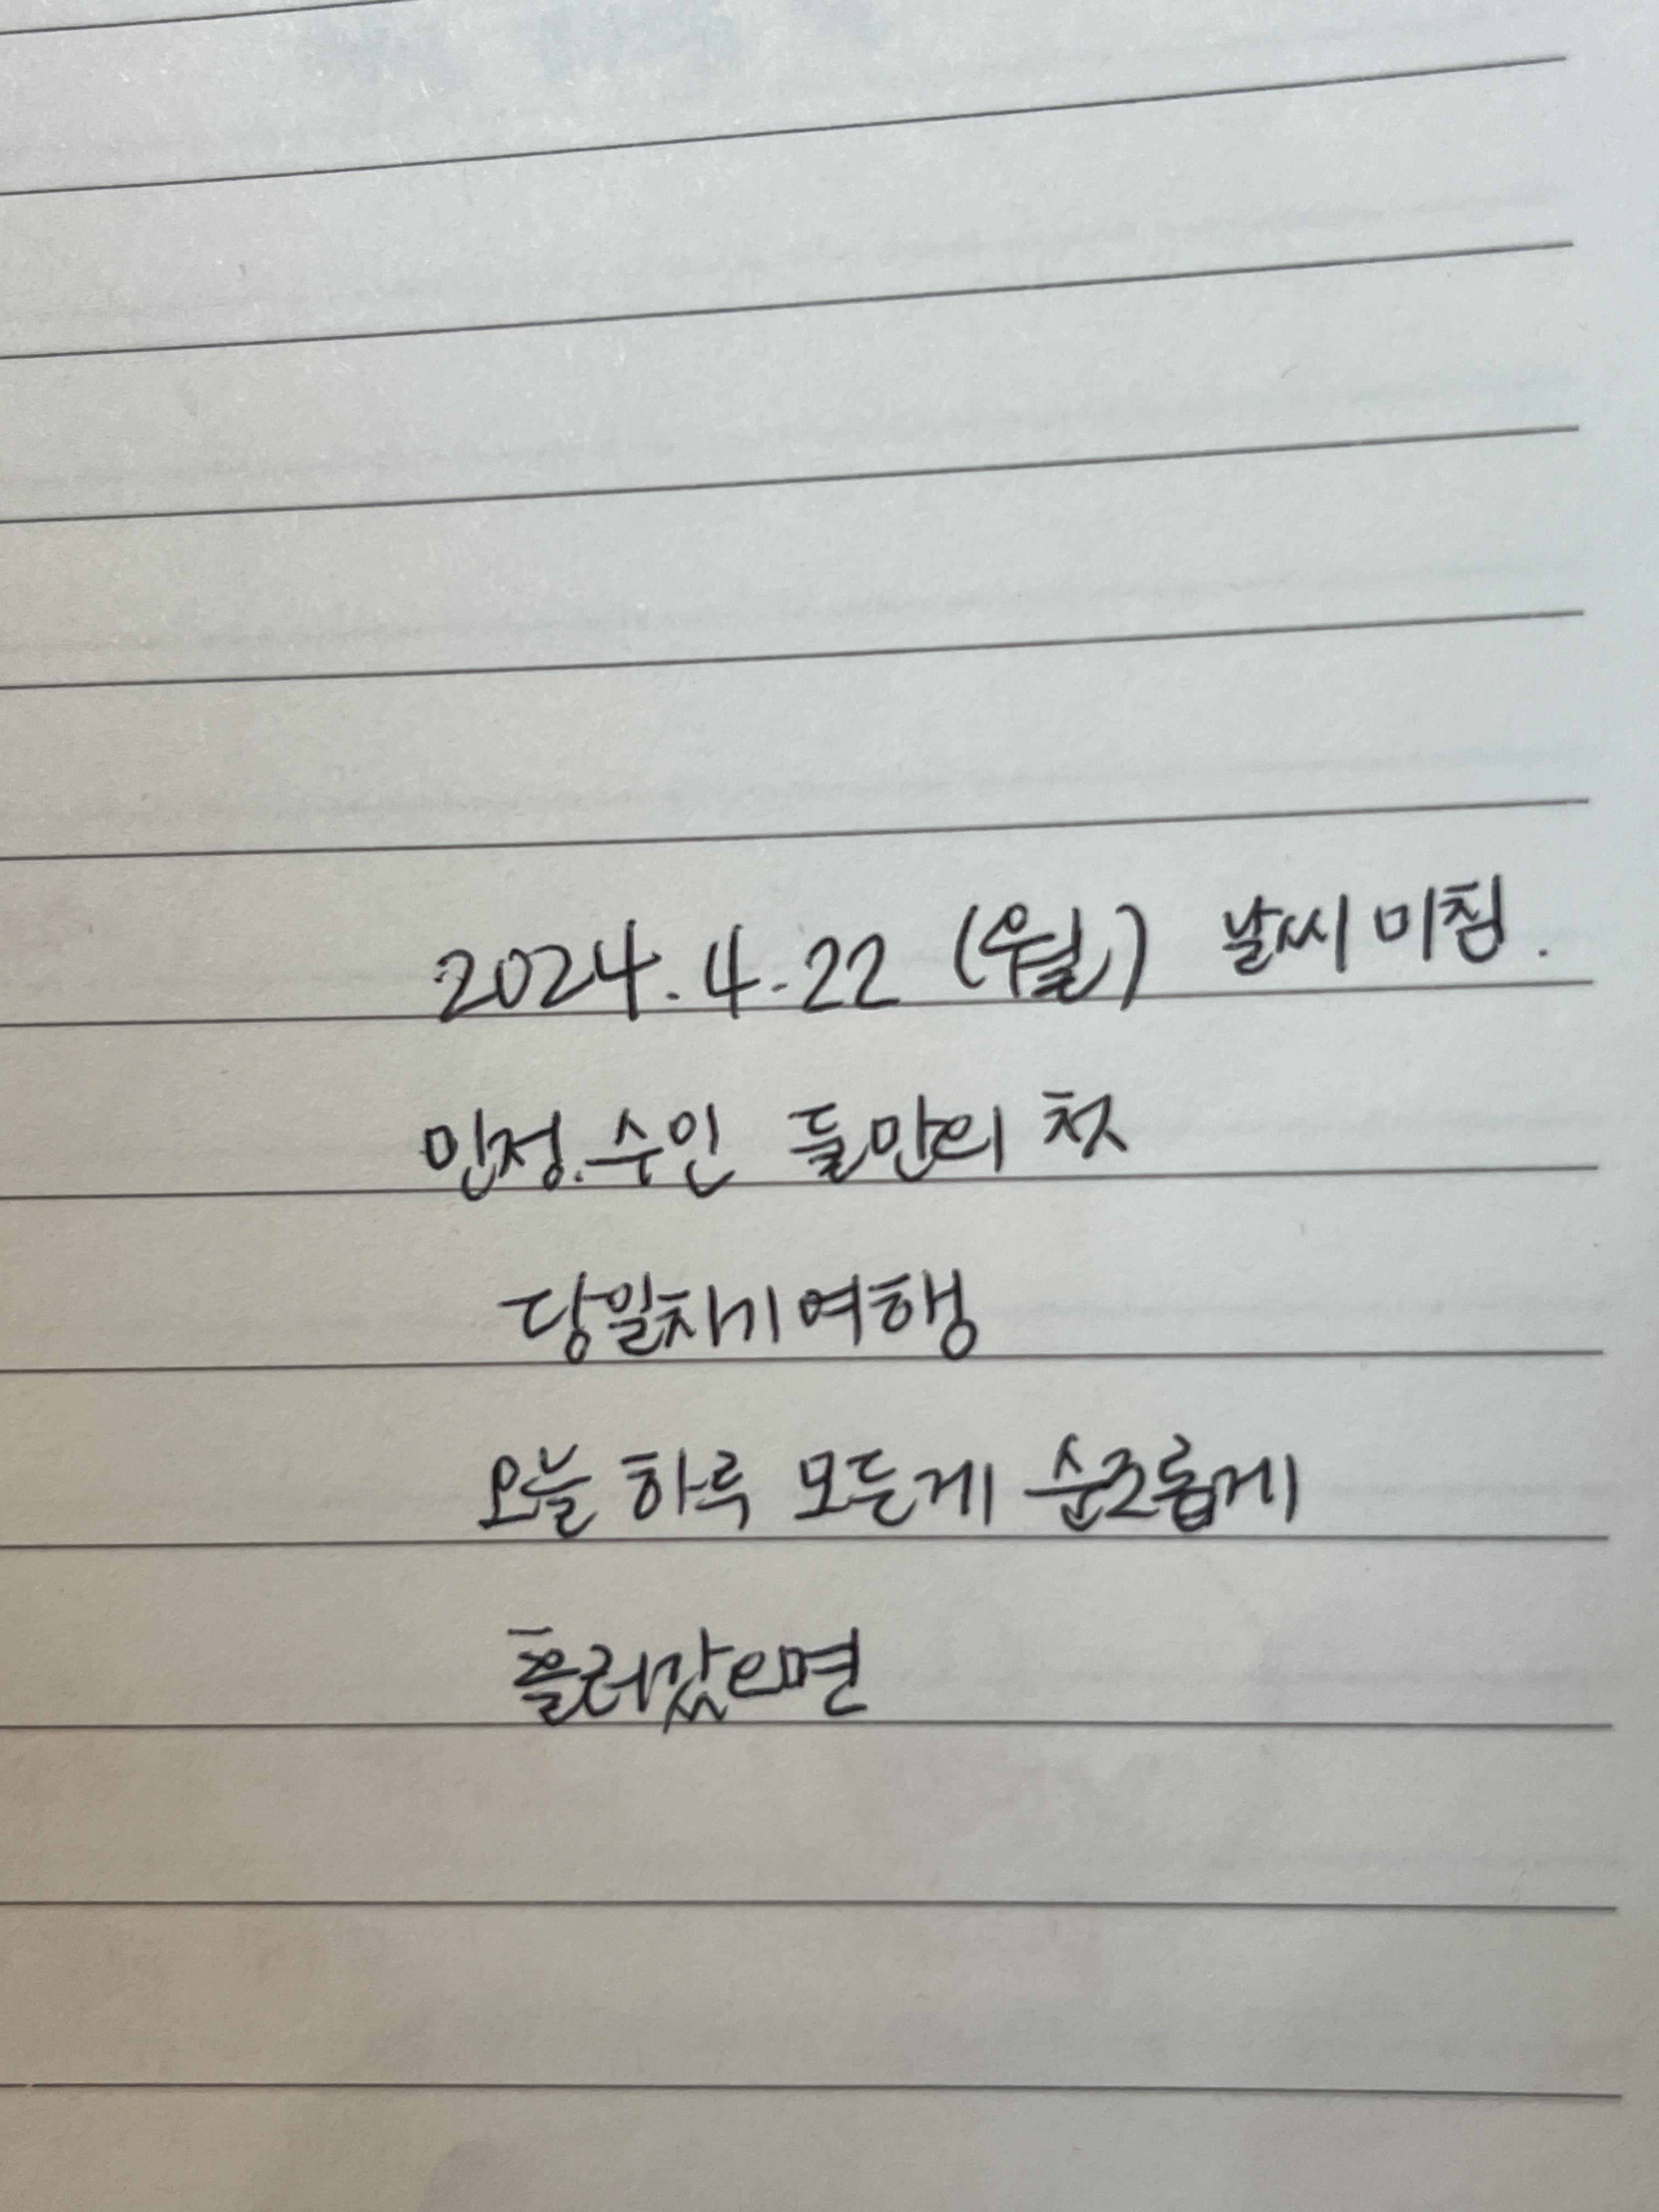 2024.4.22 (월) 날씨 미침.
민정.수인 둘만의 첫
당일치기 여행
오늘 하루 모든게 순조롭게
흘러갔으면